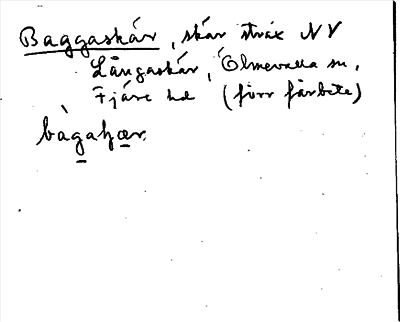 Baggaskär, skär strax NV
Långaskär, Ölmevalla sn,
Fjäre hd (förr fårbete)
bàgaʃær.